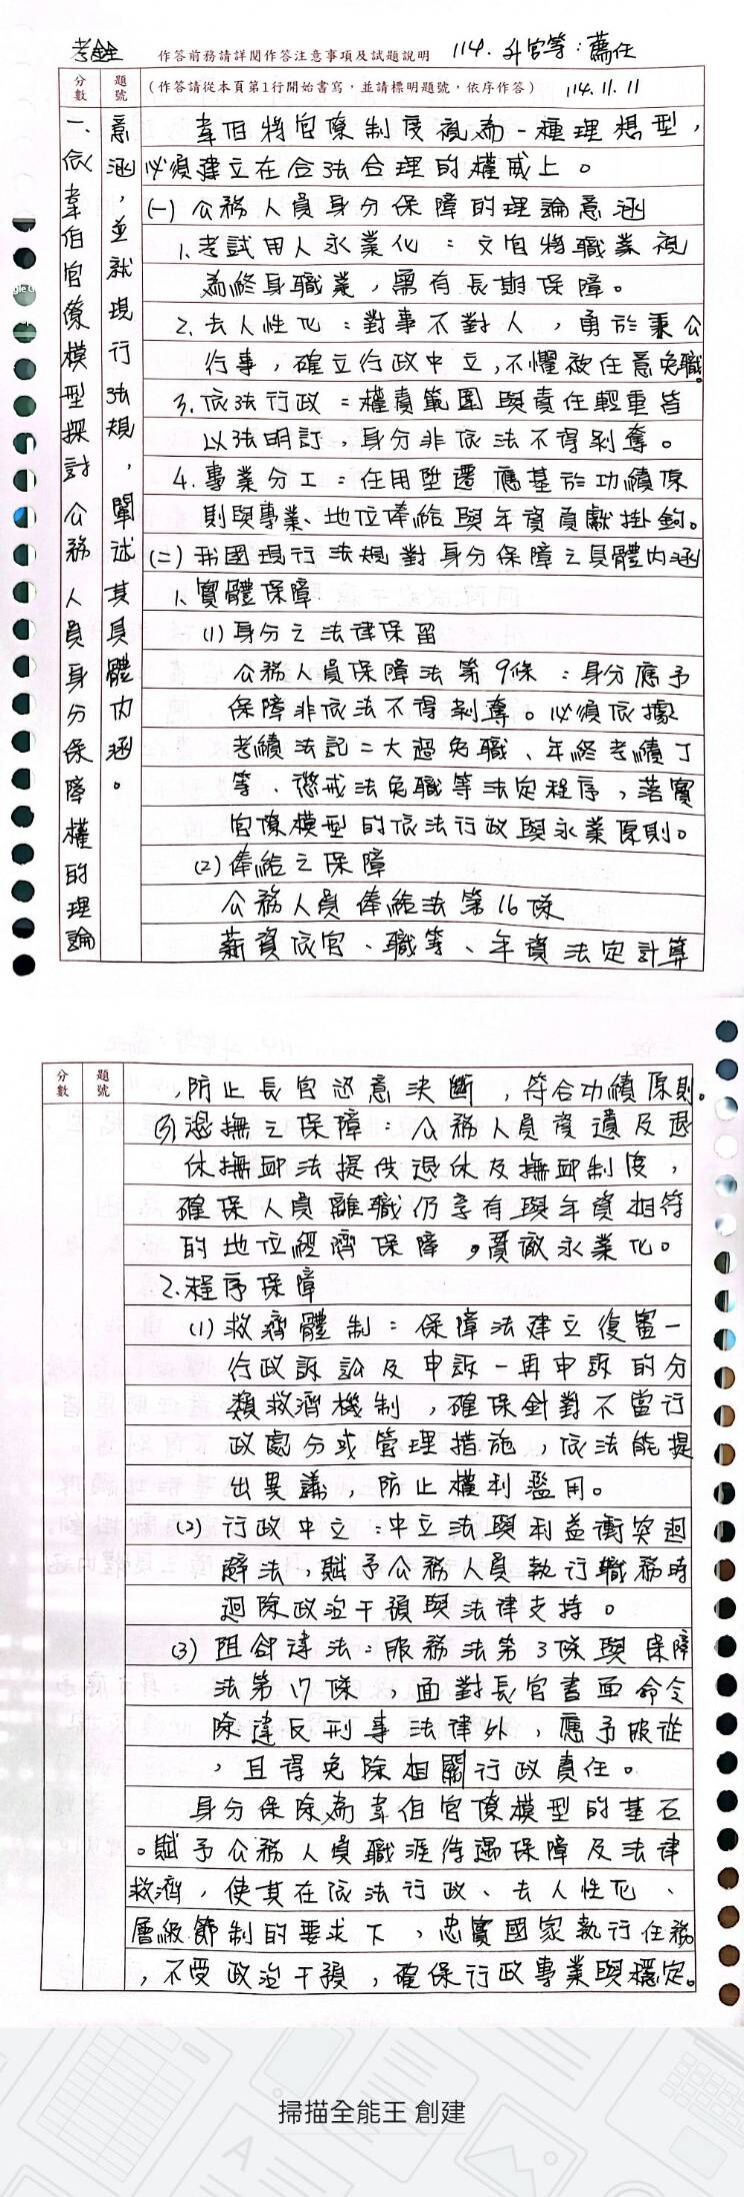 考銓
作答前務請詳閱作答注意事項及試題說明
114. 升官等:薦任
分數
題號
(作答請從本頁第1行開始書寫,並請標明題號,依序作答)
114.11.11
一、依韋伯官僚模型探討公務人員身分保障權的理論
意涵,並就現行法規,闡述其具體內涵。
韋伯將官僚制度視為一種理想型,
必須建立在合法合理的權威上。
(一)公務人員身分保障的理論意涵
1.考試用人永業化:文官將職業視
為終身職業,需有長期保障。
2.去人性化:對事不對人,勇於秉公
行事,確立行政中立,不懼被任意免職。
3.依法行政:權責範圍與責任輕重皆
以法明訂,身分非依法不得剝奪。
4.專業分工:任用陞遷應基於功績原
則與專業、地位俸給與年資貢獻掛鉤。
(二)我國現行法規對身分保障之具體內涵
1.實體保障
(1)身分之法律保留
公務人員保障法第9條:身分應予
保障非依法不得剝奪。必須依據
考績法記二大過免職、年終考績丁
等、懲戒法免職等法定程序,落實
官僚模型的依法行政與永業原則。
(2)俸給之保障
公務人員俸給法第16條
薪資依官、職等、年資法定計算
分數
題號
,防止長官恣意決斷,符合功績原則。
(3)退撫之保障:公務人員資遣及退
休撫卹法提供退休及撫卹制度,
確保人員離職仍享有與年資相符
的地位經濟保障,貫徹永業化。
2.程序保障
(1)救濟體制:保障法建立復審一
行政訴訟及申訴一再申訴的分
類救濟機制,確保針對不當行
政處分或管理措施,依法能提
出異議,防止權利濫用。
(2)行政中立:中立法與利益衝突迴
避法,賦予公務人員執行職務時
迴除政治干預與法律支持。
(3)阻卻違法:服務法第3條與保障
法第17條,面對長官書面命令
除違反刑事法律外,應予服從
,且得免除相關行政責任。
身分保障為韋伯官僚模型的基石
。賦予公務人員職涯待遇保障及法律
救濟,使其在依法行政、去人性化、
層級節制的要求下,忠實國家執行任務
,不受政治干預,確保行政專業與穩定。
掃描全能王 創建